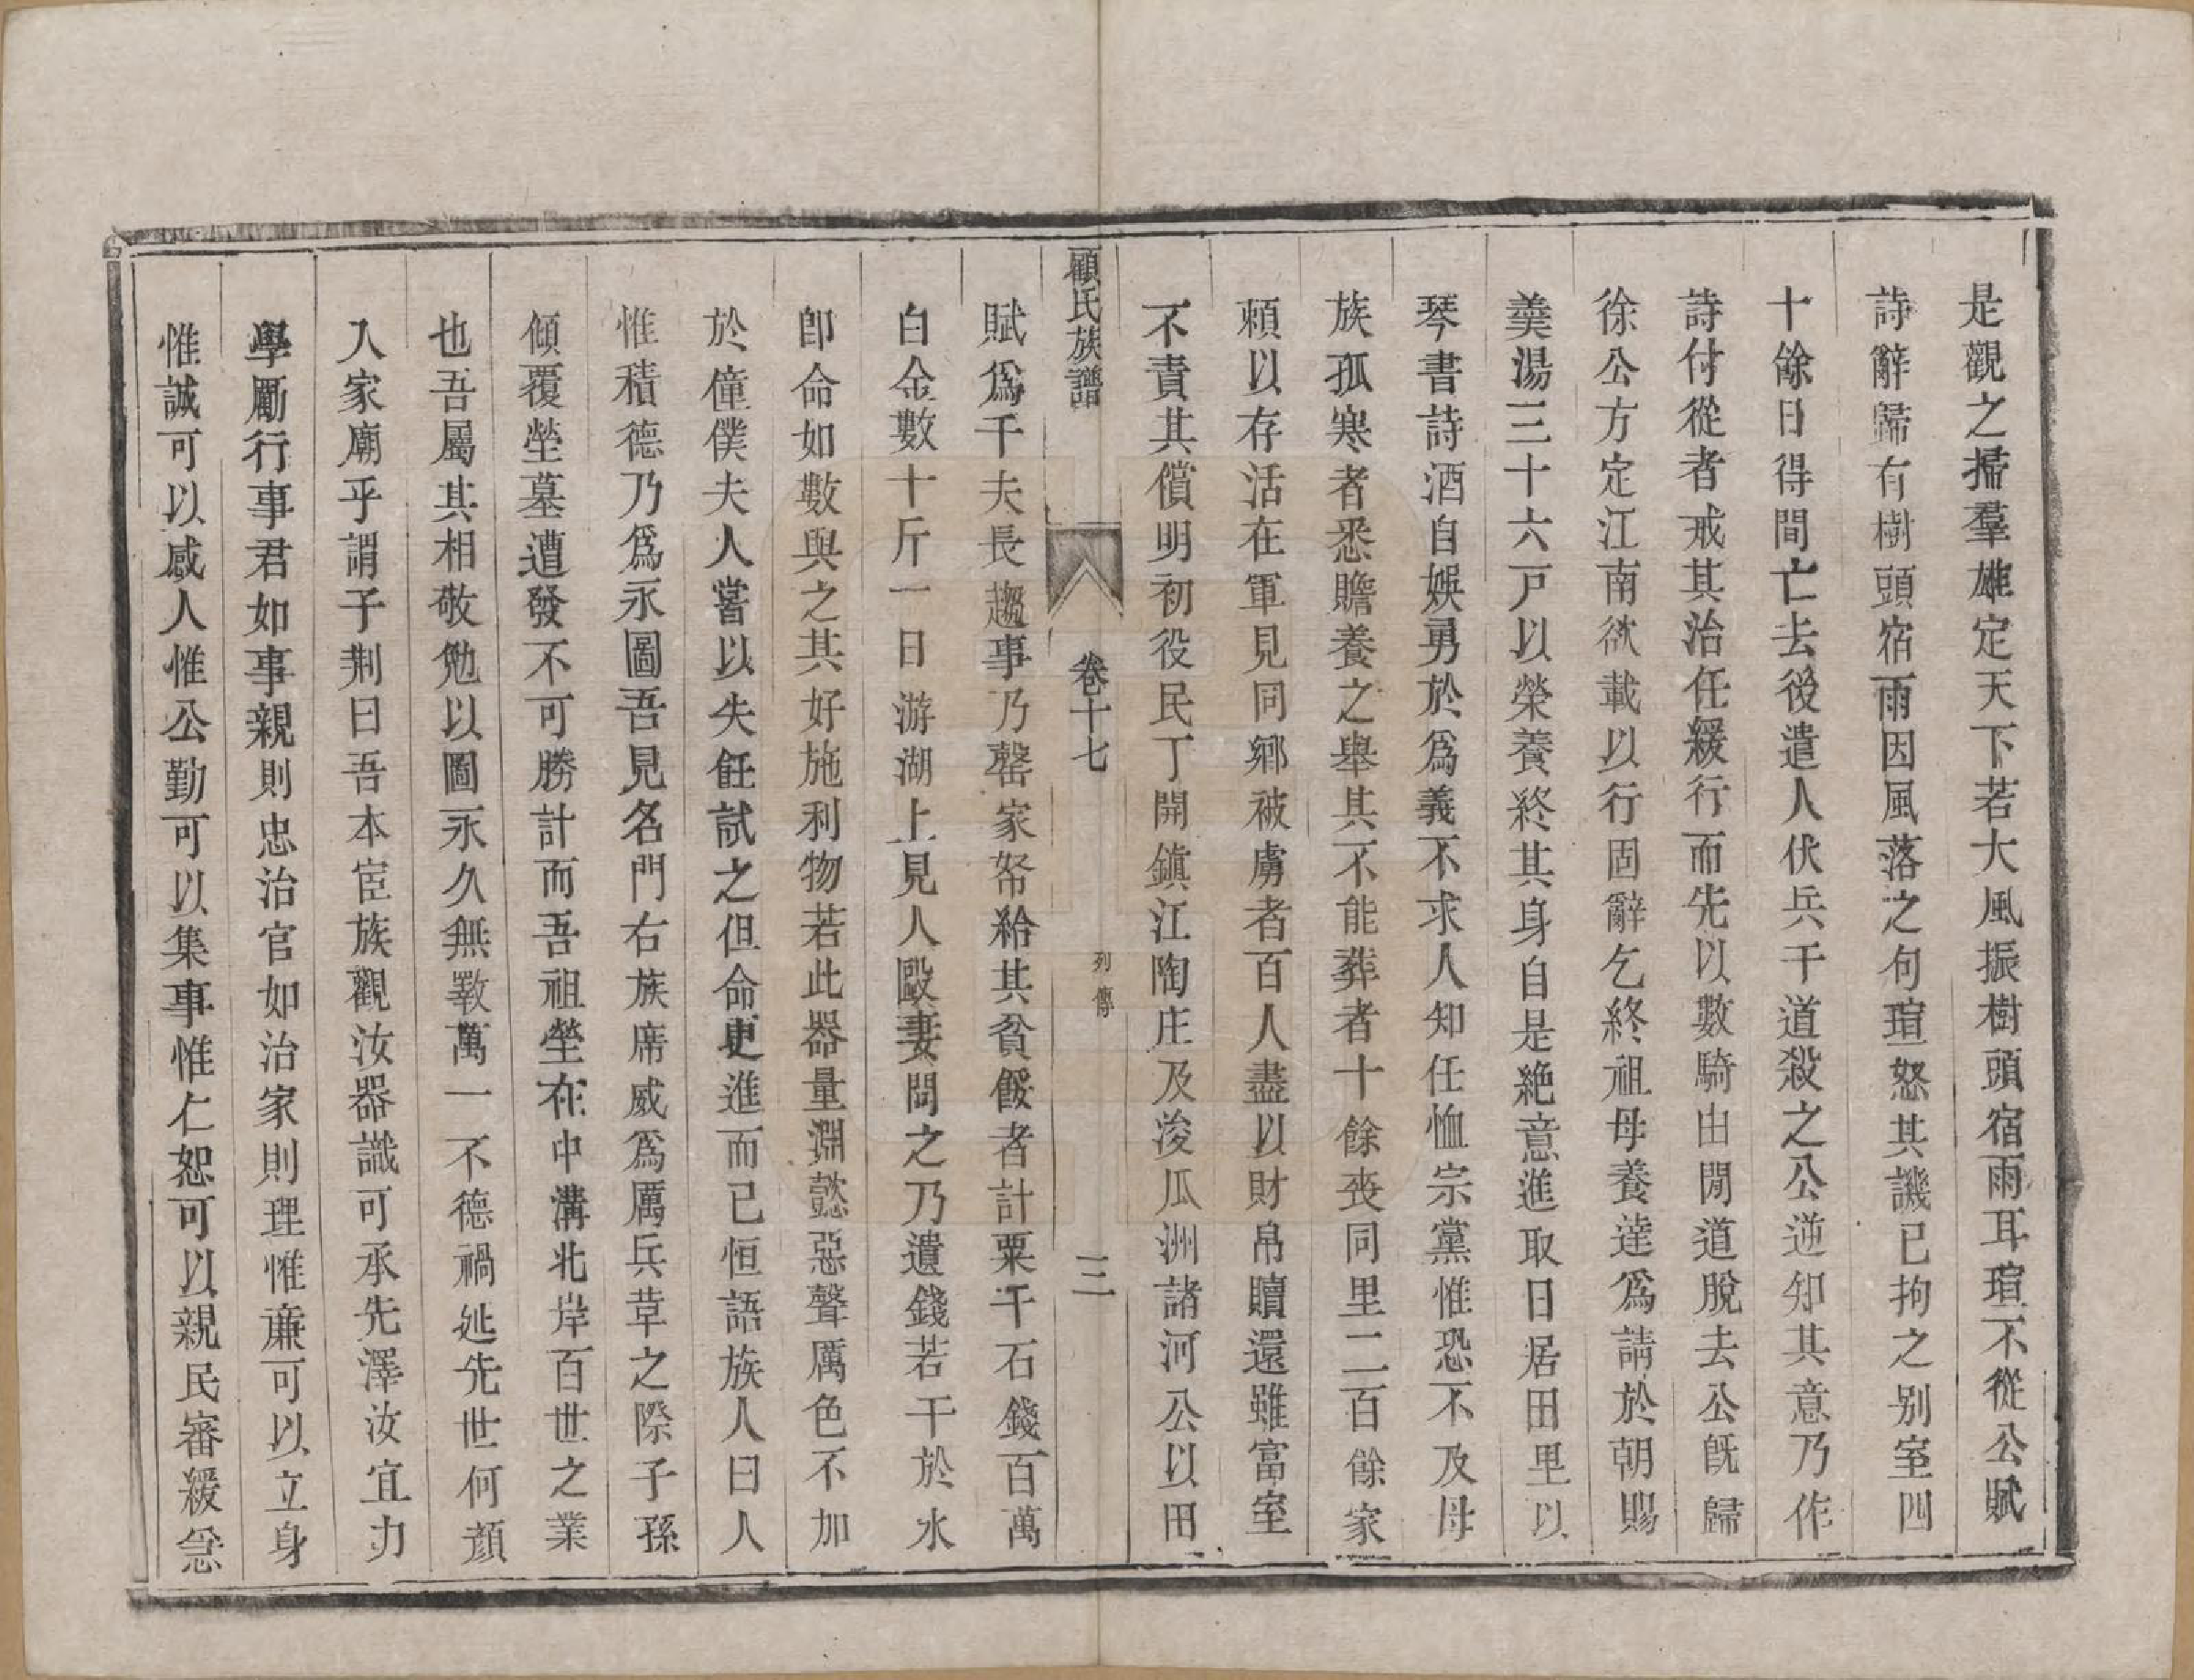 是觀之掃羣雄定天下若大風振樹頭宿雨耳瑄不從公賦
詩辭歸有樹頭宿雨因風落之句瑄怒其譏已拘之别室四
十餘日得間亡去後遣人伏兵干道殺之公逆知其意乃作
詩付從者戒其治任緩行而先以數騎由閒道脫去公旣歸
徐公方定江南欲載以行固辭乞終祖母養達爲請於朝賜
羹湯三十六戸以榮養終其身自是絶意進取日居田里以
琴書詩酒自娛勇於爲義不求人知任恤宗黨惟恐不及母
族孤寒者悉贍養之舉其不能葬者十餘喪同里二百餘家
頼以存活在軍見同鄉被虜者百人盡以財帛贖還雖富室
不責其償明初役民丁開鎭江陶庄及浚瓜洲諸河公以田
顧氏族譜 卷十七 列傳 三
賦爲千夫長趨事乃罄家帑給其貧餒者計粟千石錢百萬
白金數十斤一日游湖上見人毆妻問之乃遺錢若干於水
卽命如數與之其好施利物若此器量淵懿惡聲厲色不加
於僮僕夫人嘗以失飪試之但命更進而已恒語族人曰人
惟積德乃爲永圖吾見名門右族席威爲厲兵荒之際子孫
傾覆塋墓遭發不可勝計而吾祖塋在中溝北岸百世之業
也吾屬其相敬勉以圖永久無斁萬一不德禍延先世何顏
入家廟乎謂子荆曰吾本宦族觀汝器識可承先澤汝宜力
學勵行事君如事親則忠治官如治家則理惟亷可以立身
惟誠可以感人惟公勤可以集事惟仁恕可以親民審緩急